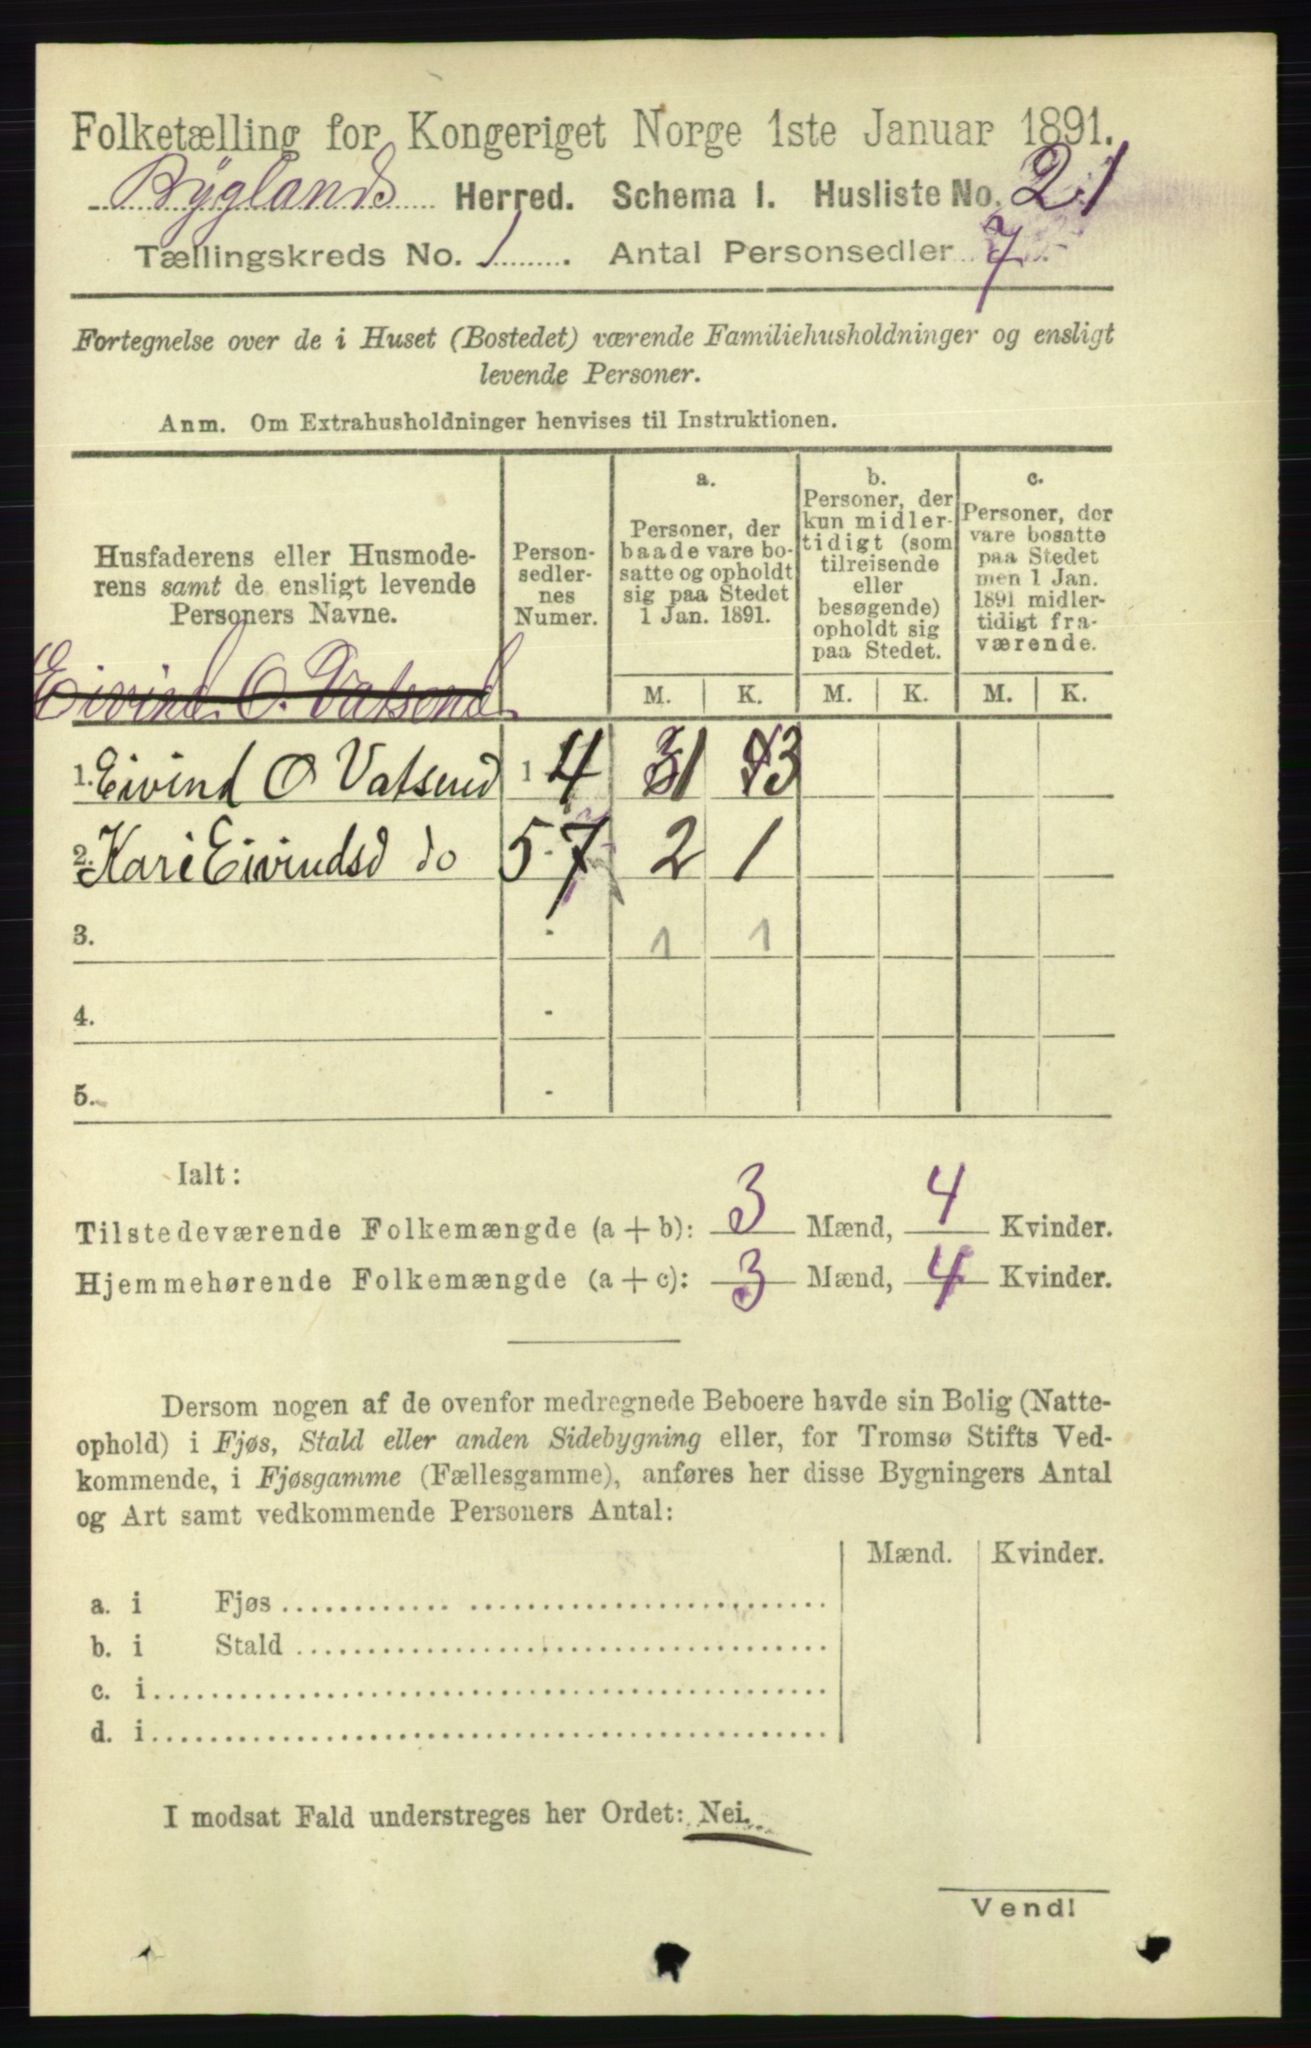 Folketælling for Kongeriget Norge 1ste Januar 1891.
Byglands Herred. Schema I. Husliste No. 21
Tællingskreds No. 1 . Antal Personsedler 7
Fortegnelse over de i Huset (Bostedet) værende Familiehusholdninger og ensligt
levende Personer.
Anm. Om Extrahusholdninger henvises til Instruktionen.
Husfaderens eller Husmode-
rens samt de ensligt levende
Personers Navne.
Person-
sedler-
nes
Numer.
a.
Personer, der
baade vare bo-
satte og opholdt
sig paa Stedet
1 Jan. 1891.
b.
Personer, der
kun midler-
tidigt (som
tilreisende
eller
besøgende)
opholdt sig
paa Stedet.
c.
Personer, der
vare bosatte
paa Stedet
men 1 Jan.
1891 midler-
tidigt fra-
værende.
M. K. M. K. M. K.
Eivind O. Vatsend
1. Eivind O Vatsend 1 4 1 3
2. Kari Eivindsd do 5-7 2 1
3. - 1 1
4. -
5. -
Ialt:
Tilstedeværende Folkemængde (a + b): 3 Mænd, 4 Kvinder.
Hjemmehørende Folkemængde (a + c): 3 Mænd, 4 Kvinder.
Dersom nogen af de ovenfor medregnede Beboere havde sin Bolig (Natte-
ophold) i Fjøs, Stald eller anden Sidebygning eller, for Tromsø Stifts Ved-
kommende, i Fjøsgamme (Fællesgamme), anføres her disse Bygningers Antal
og Art samt vedkommende Personers Antal:
Mænd. Kvinder.
a. i Fjøs
b. i Stald
c. i
d. i
I modsat Fald understreges her Ordet: Nei.
Vend!